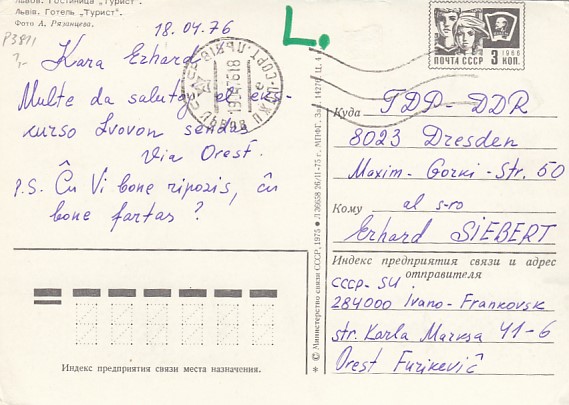 Львов. Гостиница „Турист".
Львів. Готель „Турист".
Фото А. Рязанцева.
P3891
7,-
18.04.76
L.
Kara Erhard
Multe da salutoj el eks-
kurso Lvovon sendas
Via Orest.
P.S. Ĉu Vi bone ripozis, ĉu
bone fartas?
1966
ПОЧТА СССР 3 КОП.
Куда ГДР - DDR
8023 Dresden
Maxim- Gorki- Str. 50
Кому al s-ro
Erhard SIEBERT
Индекс предприятия связи и адрес
отправителя
СССР- SU
284000 Ivano- Frankovsk
str. Karla Marksa 41-6
Orest Furikeviĉ
Индекс предприятия связи места назначения.
* © Министерство связи СССР, 1975